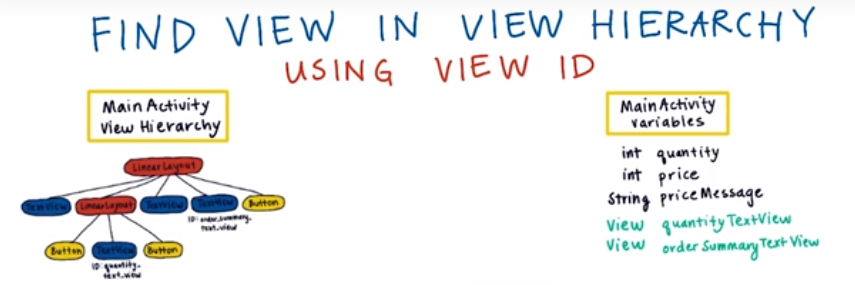 FIND VIEW IN VIEW HIERARCHY
USING VIEW ID
Main Activity
View Hierarchy
LinearLayout
TextView LinearLayout TextView TextView Button
ID: order_summary_
text_view
Button TextView Button
ID: quantity_
text_view
MainActivity
variables
int quantity
int price
String priceMessage
View quantityTextView
View orderSummaryTextView